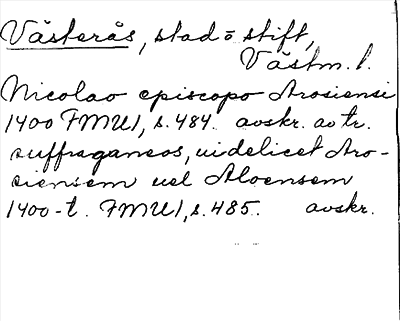 Västerås, stad o stift,
Västm. l.
Nicolao episcopo Arosiensi
1400 FMU1, s. 484. avskr. av tr.
suffraganeos, uidelicet Aro-
siensem uel Aloensem
1400-t. FMU1, s. 485. avskr.